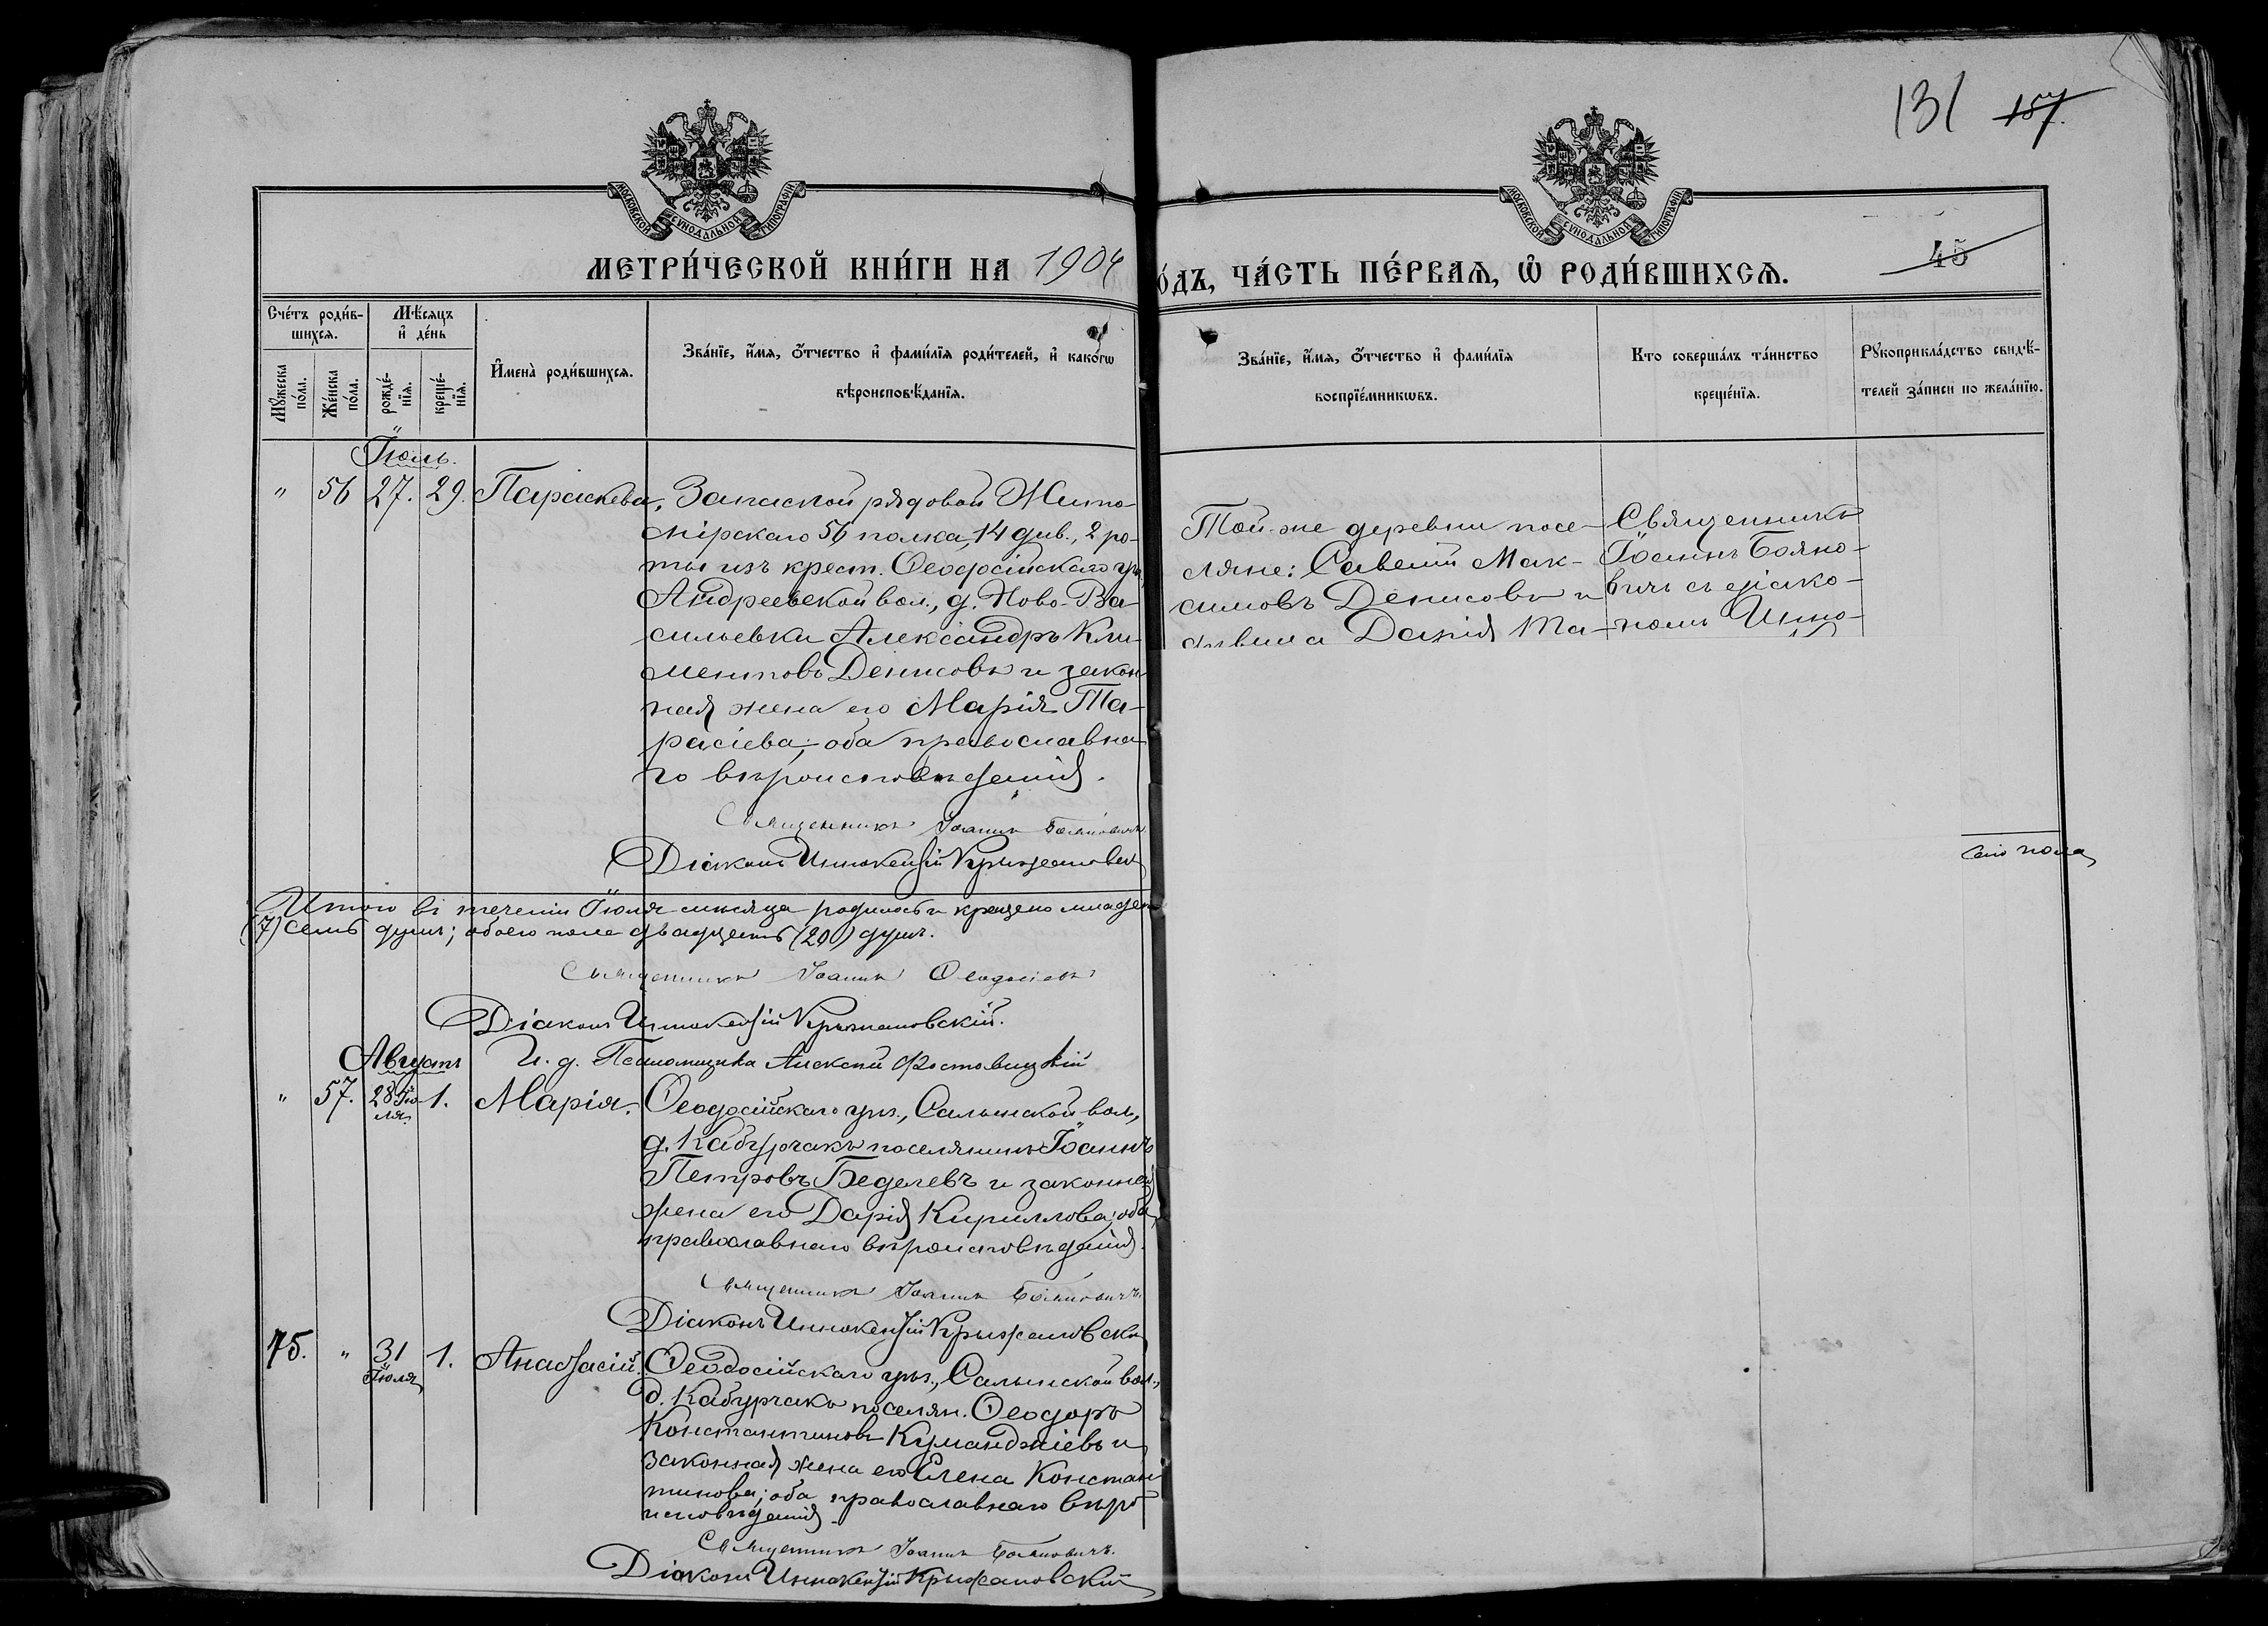 131 157
МОСКОВСКОЙ СУНОДАЛЬНОЙ ТИПОГРАФІИ
МОСКОВСКОЙ СУНОДАЛЬНОЙ ТИПОГРАФІИ
45
МЕТРИ́ЧЕСКОЙ КНИ́ГИ НА 1904
О́ДЪ, ЧА́СТЬ ПЕ́РВАѦ, Ѽ РОДИ́ВШИХСѦ.
Сче́тъ роди́в-
шихсѧ.
Мꙋ́жеска по́ла.
Же́нска по́ла.
Мѣ́сѧцъ
и҆ де́нь
рожде́-
нїѧ.
креще́-
нїѧ.
И҆мена̀ роди́вшихсѧ.
Зва́нїе, и҆́мѧ, ѻ҆́тчество и҆ фами́лїѧ роди́телей, и҆ како́гѡ
вѣроисповѣ́данїѧ.
Зва́нїе, и҆́мѧ, ѻ҆́тчество и҆ фами́лїѧ
воспрїе́мникѡвъ.
Кто соверша́лъ та́инство
креще́нїѧ.
Рꙋкоприкла́дство свидѣ́-
телей за́писи по жела́нїю.
Іюль.
" 56 27. 29. Параскева, Запасной рядовой Жито-
мірскаго 56 полка, 14 див., 2 ро-
ты изъ крест. Ѳеодосійскаго у.
Андреевской вол., д. Ново-Ва-
сильевки Александръ Кли-
ментовъ Денисовъ и закон
ная жена его Марія Та-
расіева; оба православна-
го вѣроисповѣданія.
Священникъ Іоаннъ Бояновичъ
Діаконъ Иннокентій Крыжановск
Той-же деревни посе-
ляне: Савелій Мак-
симовъ Денисовъ и
дѣвица Дарія Та-
Священникъ
Іоаннъ Бояно-
вичъ съ діако-
номъ Инно-
сего пола
Итого въ теченіи Іюля мѣсяца родилось и крещено младен
(7) семь душъ; обоего пола двадцать (20) душъ.
Священникъ Іоаннъ
Діаконъ Иннокентій Крыжановскій.
Августъ И. д. Псаломщика Алексій
" 57. 28 Ію-
ля 1. Марія. Ѳеодосійскаго уѣз., Салынской вол.,
д. Кабурчакъ поселянинъ Іоаннъ
Петровъ Беделевъ и законная
жена его Дарія Кириллова; оба
православнаго вѣроисповѣданія.
Священникъ Іоаннъ Бояновичъ
Діаконъ Иннокентій Крыжановскі
75. " 31
Іюля 1. Анаѳасій. Ѳеодосійскаго уѣз., Салынской вол.,
д. Кабурчакъ поселян. Ѳеодоръ
Константиновъ Куманджіевъ и
законная жена его Елена Констан
тинова; оба православнаго вѣро
исповѣданія.
Священникъ Іоаннъ Бояновичъ.
Діаконъ Иннокентій Крыжановскій